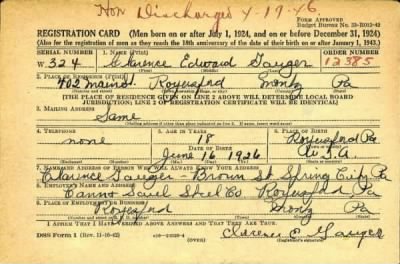 Hon Discharged 4-19-46
FORM APPROVED
Budget Bureau No. 33-R012-42
REGISTRATION CARD (Men born on or after July 1, 1924, and on or before December 31, 1924)
(Also for the registration of men as they reach the 18th anniversary of the date of their birth on or after January 1, 1943.)
SERIAL NUMBER 1. NAME (Print) ORDER NUMBER
W 324 Clarence Edward Gauger 12385
2. PLACE OF RESIDENCE (Print)
402 main St. Royersford Montg Pa
[THE PLACE OF RESIDENCE GIVEN ON LINE 2 ABOVE WILL DETERMINE LOCAL BOARD
JURISDICTION; LINE 2 OF REGISTRATION CERTIFICATE WILL BE IDENTICAL]
3. MAILING ADDRESS
Same
4. TELEPHONE 5. AGE IN YEARS 6. PLACE OF BIRTH
none 18 Royersford Pa
DATE OF BIRTH
June 16 1926 U.S.A.
7. NAME AND ADDRESS OF PERSON WHO WILL ALWAYS KNOW YOUR ADDRESS
Clarence Gauger Brown St Spring City Pa
8. EMPLOYER'S NAME AND ADDRESS
Steel Co. Royersford Pa
9. PLACE OF EMPLOYMENT OR BUSINESS
Royersford Montg Pa
I AFFIRM THAT I HAVE VERIFIED ABOVE ANSWERS AND THAT THEY ARE TRUE.
DSS Form 1 (Rev. 11-16-42) (OVER) Clarence E. Gauger
(Registrant's signature)